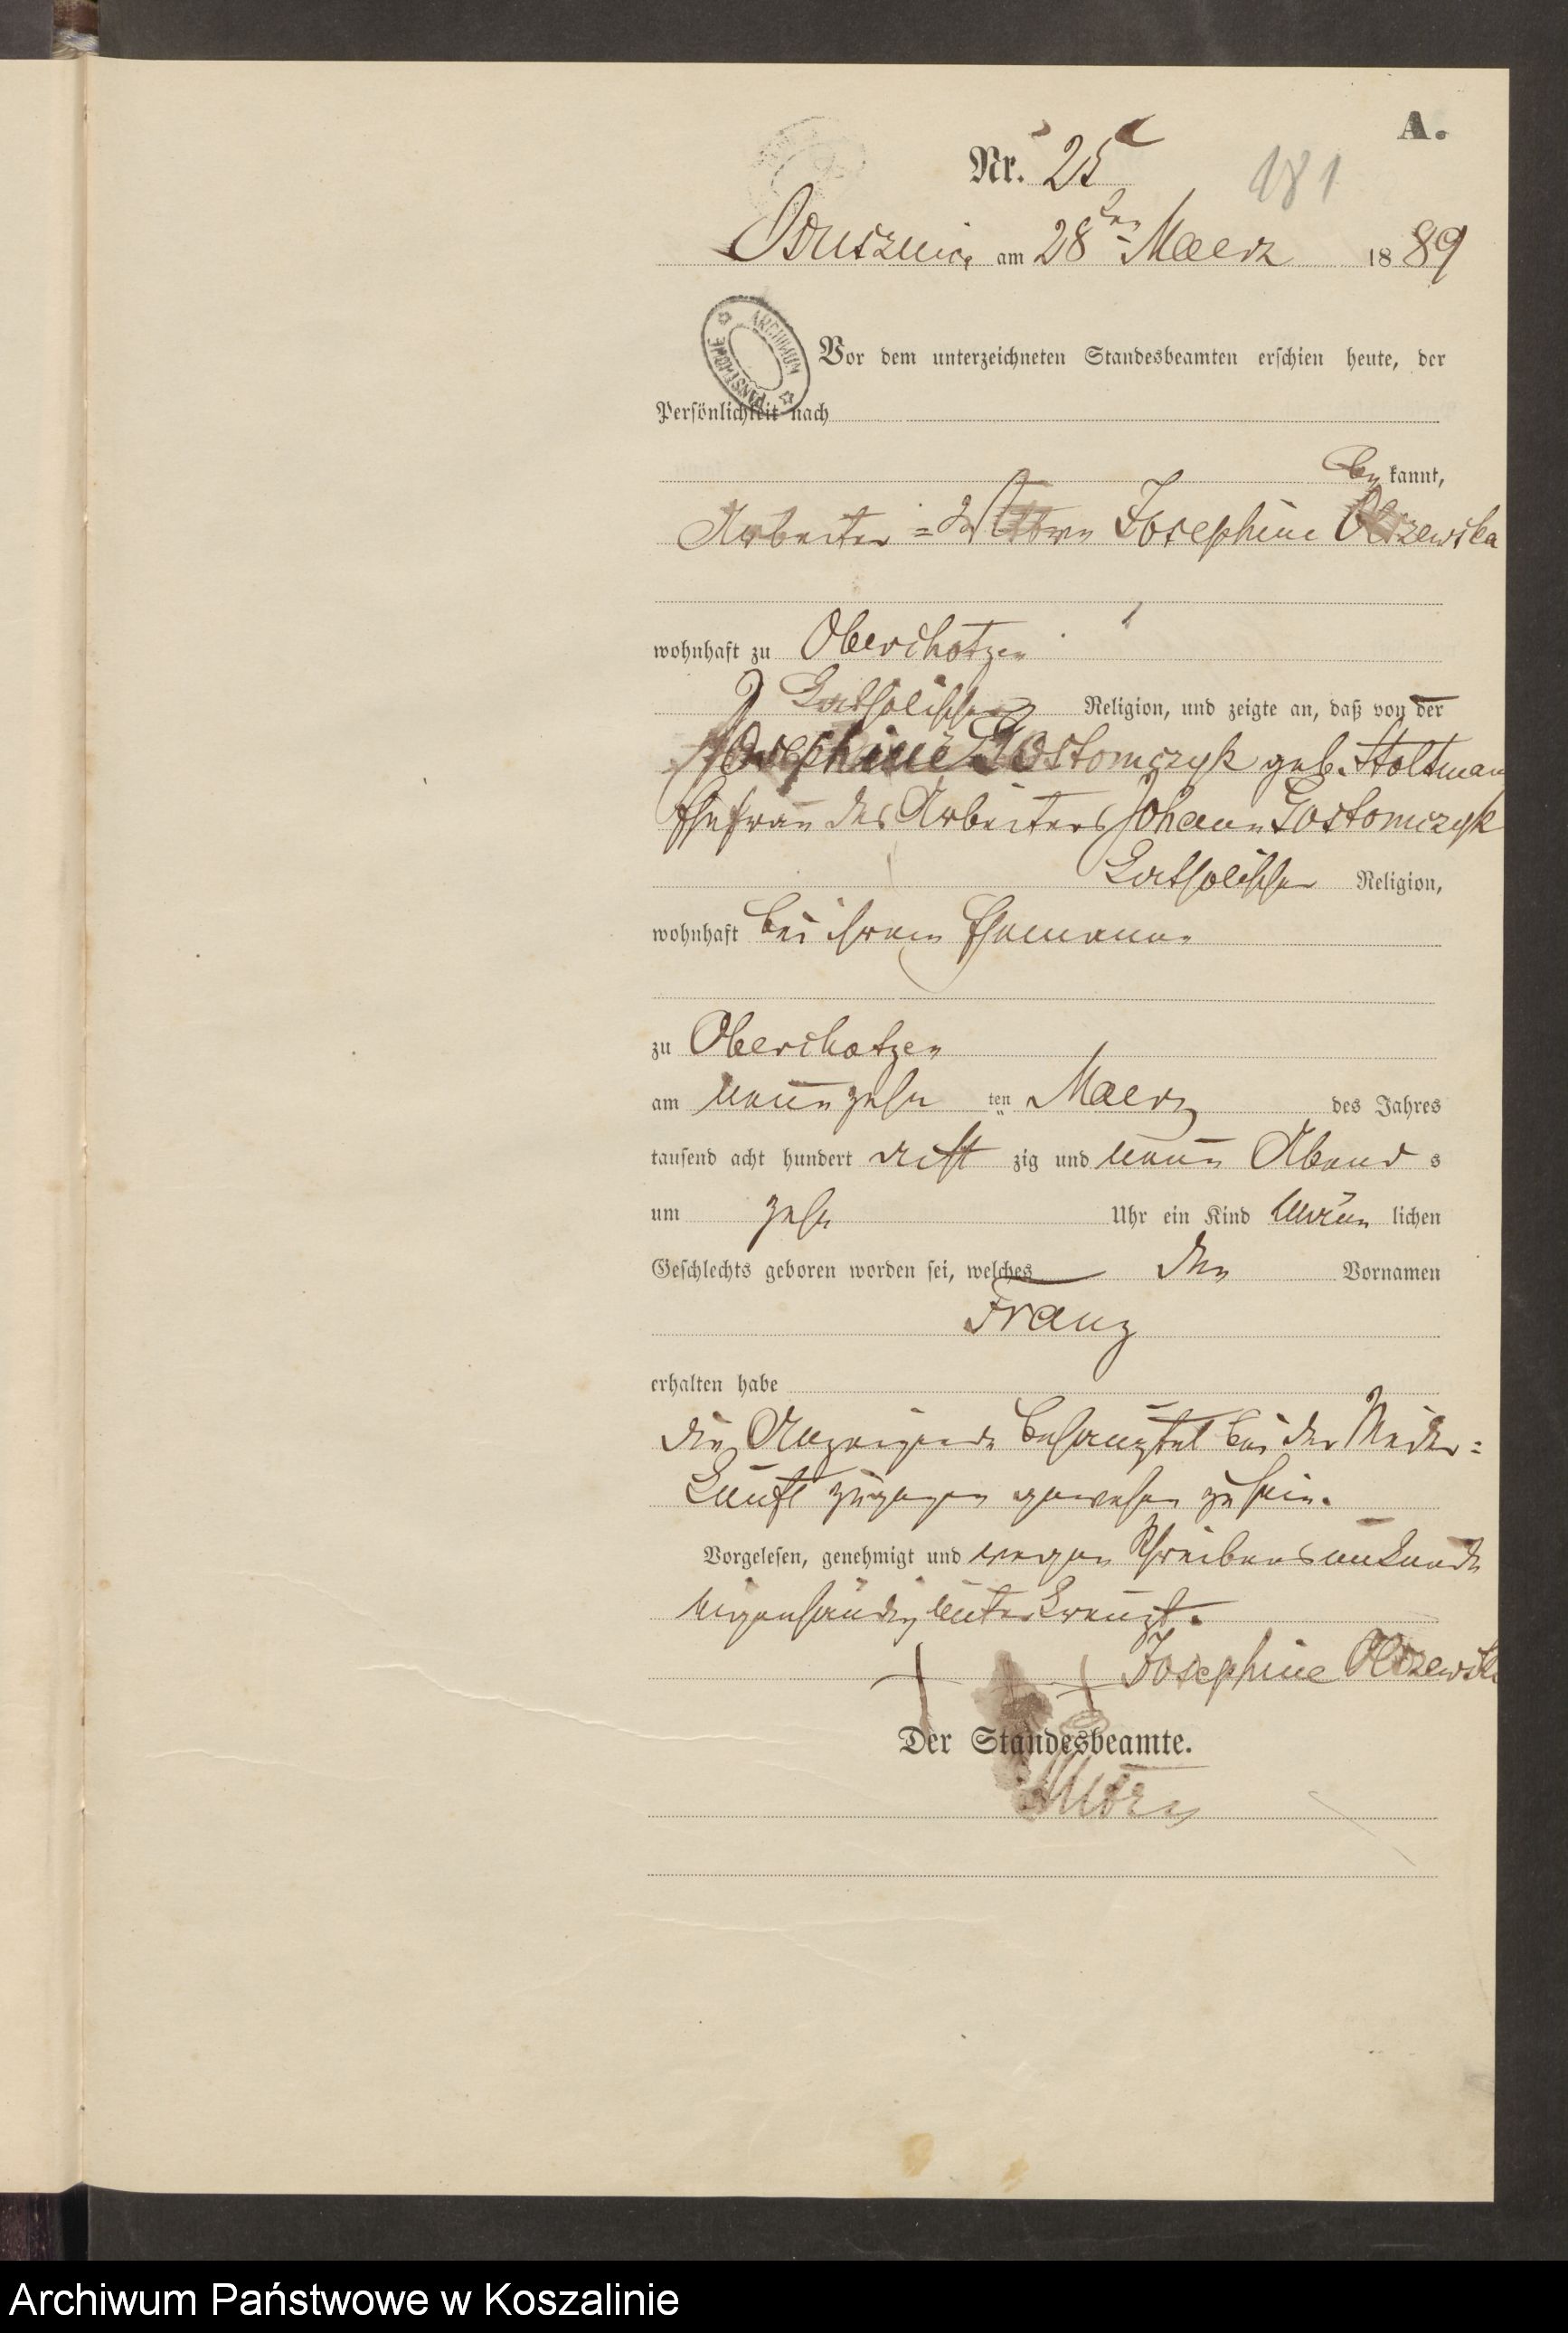 A.
Nr. 25
181
Ossusznica am 28ten Maerz 1889
ARCHIWUM PAŃSTWOWE
Vor dem unterzeichneten Standesbeamten erschien heute, der
Persönlichkeit nach
be kannt,
Arbeiter = Wittwe Josephine Olszewska
wohnhaft zu Oberchotzen
katholischer Religion, und zeigte an, daß von der
Josephine Gostomczyk geb. Stoltmann
Ehefrau des Arbeiters Johann Gostomczyk
katholischer Religion,
wohnhaft bei ihrem Ehemanne
zu Oberchotzen
am neunzehn ten Maerz des Jahres
tausend acht hundert acht zig und neun Abend s
um zehn Uhr ein Kind männ lichen
Geschlechts geboren worden sei, welches den Vornamen
Franz
erhalten habe
die Anzeigende behauptet bei der Nieder=
kunft zugegen gewesen zu sein.
Vorgelesen, genehmigt und wegen Schreibensunkunde
eigenhändig unterkreuzt.
+ + + Josephine Olszewska
Der Standesbeamte.
Archiwum Państwowe w Koszalinie